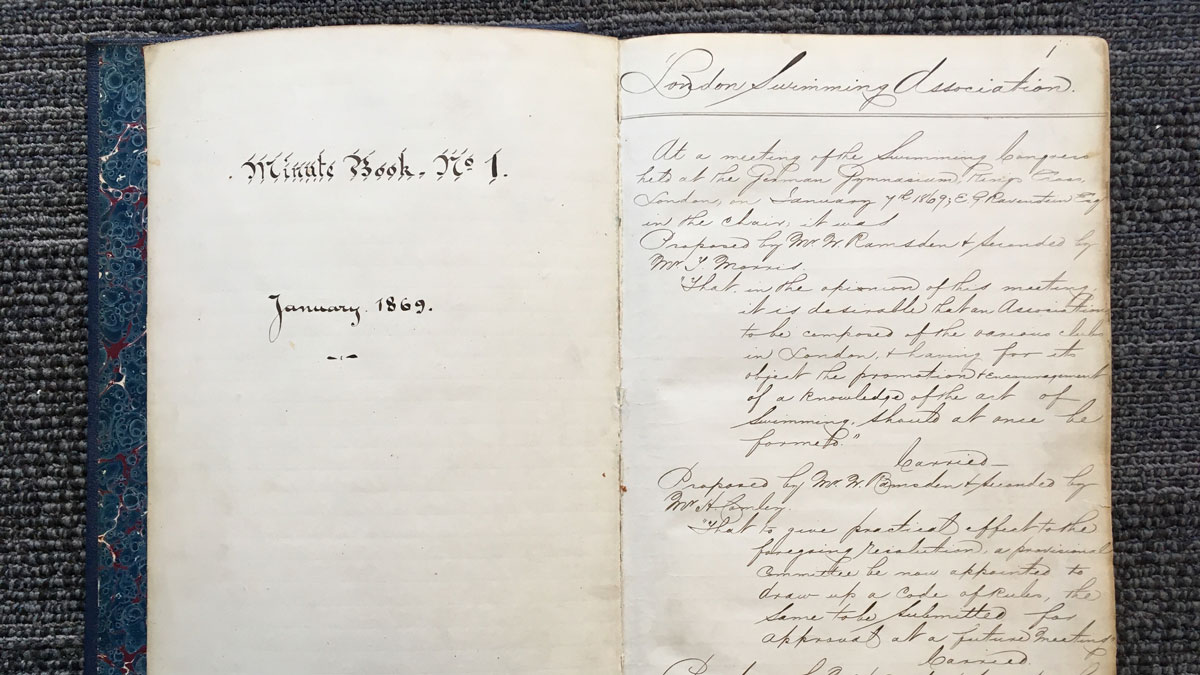 Minute Book. No 1.
January 1869.
1
London Swimming Association.
At a meeting of the Swimming Congress
held at the German Gymnasium, Kings Cross,
London, on January 7th 1869; E G Ravenstein Esq
in the chair, it was
Proposed by Mr W Ramsden & seconded by
Mr T. Morris
"That in the opinion of this meeting
it is desirable that an Association
to be composed of the various clubs
in London, & having for its
object the promotion & encouragement
of a knowledge of the art of
Swimming, should at once be
formed."
Carried
Proposed by Mr W. Ramsden & seconded by
Mr H
"That to give practical effect to the
foregoing resolution, a provisional
Committee be now appointed to
draw up a Code of Rules, the
same to be submitted for
approval at a future Meeting"
Carried.